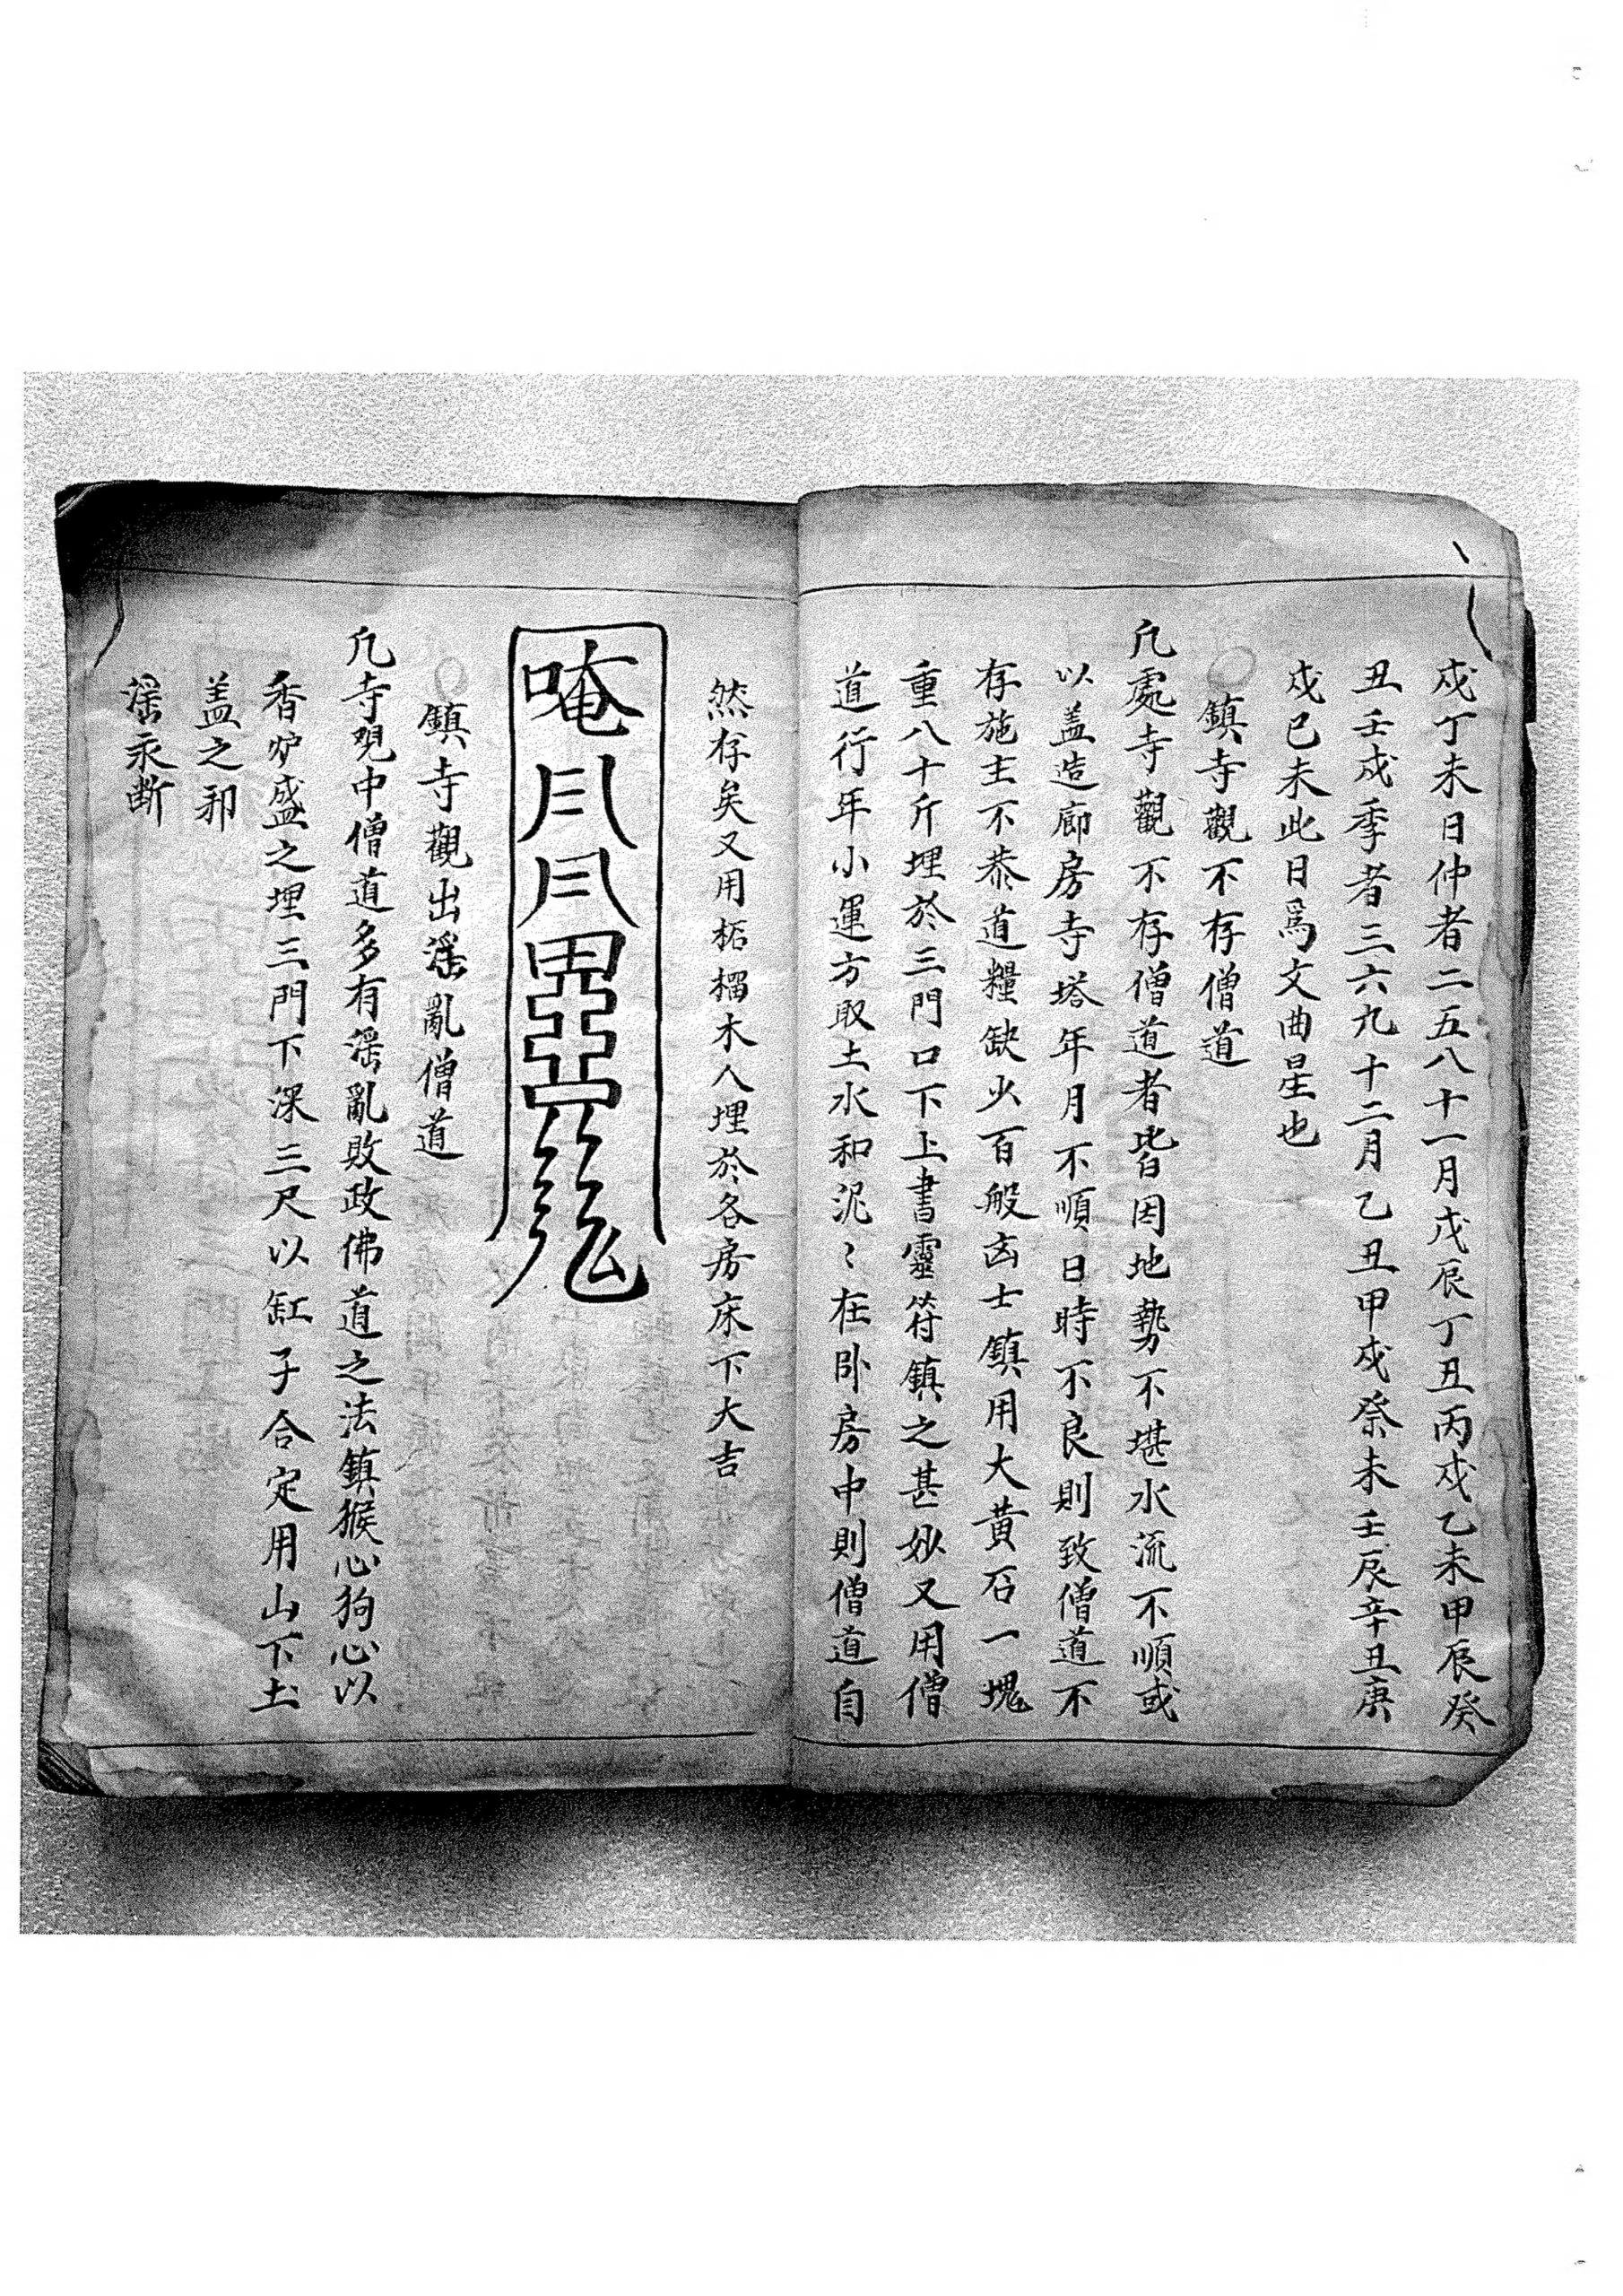 戌丁未日仲者二五八十一月戊辰丁丑丙戌乙未甲辰癸
丑壬戌季者三六九十二月乙丑甲戌癸未壬辰辛丑庚
戌己未此日爲文曲星也
鎮寺觀不存僧道
凡處寺觀不存僧道者皆因地勢不堪水流不順或
以盖造廊房寺塔年月不順日時不良則致僧道不
存施主不恭道糧缺少百般凶士鎮用大黃石一塊
重八十斤埋於三門口下上書靈符鎮之甚妙又用僧
道行年小運方取土水和泥〻在卧房中則僧道自
然存矣又用柘榴木人埋於各房床下大吉
唵
鬼
鎮寺觀出滛亂僧道
凡寺覌中僧道多有滛亂敗政佛道之法鎮猴心狗心以
香炉盛之埋三門下深三尺以缸子合定用山下土
盖之邪
滛永断